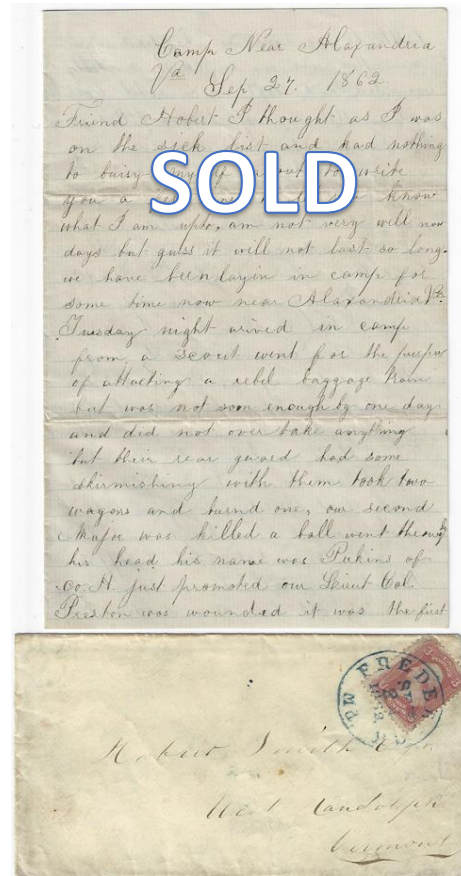 Camp Near Alaxandria
Va Sep 27. 1862
Friend Hobert I thought as I was
on the sick list and had nothing
to buisy my
SOLD
you a know
what I am upto, am not very well now
days but guss it will not last so long.
we have been layin in camp for
some time now near Alaxandria Va.
Tuesday night arived in camp
from a scout went for the purpos
of attacting a rebel baggage train
but was not soon enough by one day
and did not over take anything
but their rear guard had some
skirmishing with them took two
wagons and burnd one, our second
Major was killed a ball went throug
his head his name was Perkins of
Co. H just promoted our Lieut Col.
Preston was wounded it was the first
FREDERICK
MD.
Hobert Smith Esqr.
West Randolph
Vermont